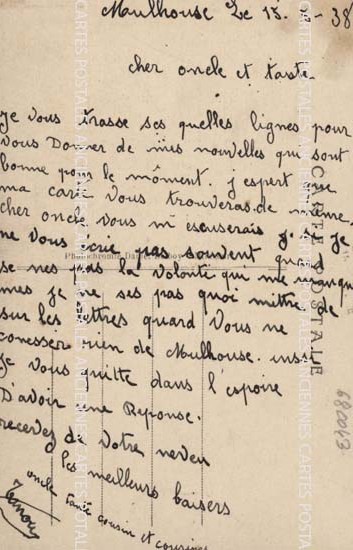 Mulhouse Le 15. - 38
cher oncle et tante.
je vous trasse ses quelles lignes pour
vous Donner de mes nouvelles qui sont
bonne pour le moment. j'espert que
ma cart vous trouveras de même.
cher oncle vous m escuserais si je
ne vous écrie pas souvent quand
se nes pas la volonté qui me manque
mes je ne ses pas quoi mittre de
sur les lettres quard vous ne
conesser rien de Mulhouse. inssi
je vous quitte dans l'espoire
D'avoir une Reponse.
recevez de votre neveu
les meilleurs baisers
oncle tante cousin et cousine
CARTE POSTALE
680043
CARTES POSTALES ANCIENNES